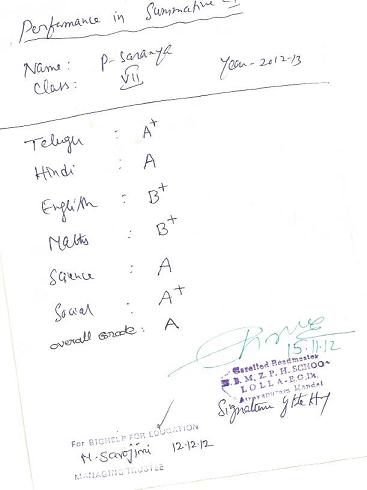 Performance in Summative
Name: P. Saranya
Class: VII
Year - 2012-13
Telugu : A+
Hindi : A
English : B+
Maths : B+
Science : A
Social : A+
overall Grade : A
15.11.12
Gazetted Headmaster
B. M. Z. P. H. SCHOO
LOLLA - E.G.Dt.
Mandal
Signature of the HM
For BIGHELP FOR EDUCATION
M. Sarojini 12.12.12
MANAGING TRUSTEE